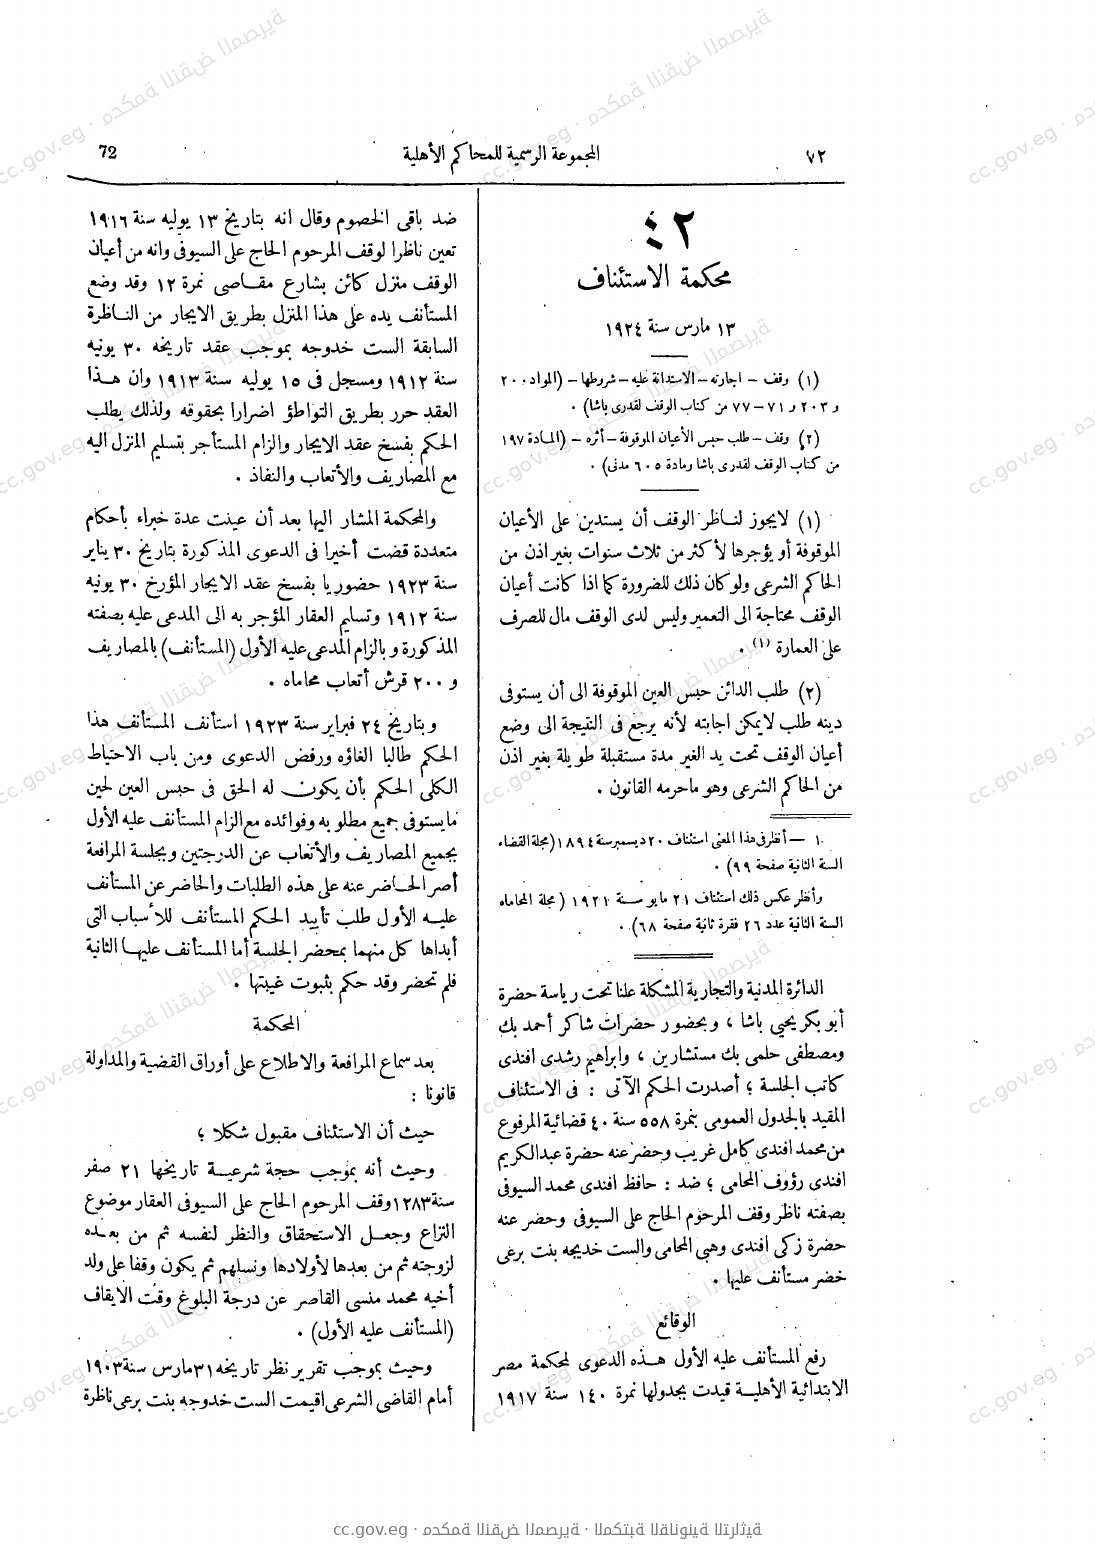 ٧٢
المجموعة الرسمية للمحاكم الأهلية
72
٤٢
محكمة الاستئناف
١٣ مارس سنة ١٩٢٤
(١) وقف – اجارته – الاستدانة عليه – شروطها – (المواد ٢٠٠
و ٢٠٣ و ٧١ – ٧٧ من كتاب الوقف لقدرى باشا) .
(٢) وقف – طلب حبس الأعيان الموقوفة – أثره – (المادة ١٩٧
من كتاب الوقف لقدرى باشا ومادة ٦٠٥ مدنى) .
(١) لايجوز لناظر الوقف أن يستدين على الأعيان
الموقوفة أو يؤجرها لأكثر من ثلاث سنوات بغير اذن من
الحاكم الشرعى ولو كان ذلك للضرورة كما اذا كانت أعيان
الوقف محتاجة الى التعمير وليس لدى الوقف مال للصرف
على العمارة (١) .
(٢) طلب الدائن حبس العين الموقوفة الى أن يستوفى
دينه طلب لايمكن اجابته لأنه يرجع فى النتيجة الى وضع
أعيان الوقف تحت يد الغير مدة مستقبلة طويلة بغير اذن
من الحاكم الشرعى وهو ماحرمه القانون .
١ – أنظر فى هذا المعنى استئناف ٢٠ ديسمبر سنة ١٨٩٤ (مجلة القضاء
السنة الثانية صفحة ٩٩) .
وأنظر عكس ذلك استئناف ٢١ مايو سنة ١٩٢١ (مجلة المحاماه
السنة الثانية عدد ٢٦ فقرة ثانية صفحة ٦٨) .
الدائرة المدنية والتجارية المشكلة علنا تحت رياسة حضرة
أبو بكر يحيي باشا ، وبحضور حضرات شاكر أحمد بك
ومصطفى حلمى بك مستشارين ، وابراهيم رشدى افندى
كاتب الجلسة ؛ أصدرت الحكم الآتى : فى الاستئناف
المقيد بالجدول العمومى بنمرة ٥٥٨ سنة ٤٠ قضائية المرفوع
من محمد افندى كامل غريب وحضر عنه حضرة عبد الكريم
افندى رؤوف المحامى ؛ ضد : حافظ افندى محمد السيوفى
بصفته ناظر وقف المرحوم الحاج على السيوفى وحضر عنه
حضرة زكى افندى وهبى المحامى والست خديجه بنت برعى
خضر مستأنف عليها .
الوقائع
رفع المستأنف عليه الأول هذه الدعوى لمحكمة مصر
الابتدائية الأهلية قيدت بجدولها نمرة ١٤٠ سنة ١٩١٧
ضد باقى الخصوم وقال انه بتاريخ ١٣ يوليه سنة ١٩١٦
تعين ناظرا لوقف المرحوم الحاج على السيوفى وانه من أعيان
الوقف منزل كائن بشارع مقاصى نمرة ١٢ وقد وضع
المستأنف يده على هذا المنزل بطريق الايجار من الناظرة
السابقة الست خدوجه بموجب عقد تاريخه ٣٠ يونيه
سنة ١٩١٢ ومسجل فى ١٥ يوليه سنة ١٩١٣ وان هذا
العقد حرر بطريق التواطؤ اضرارا بحقوقه ولذلك يطلب
الحكم بفسخ عقد الايجار والزام المستأجر بتسليم المنزل اليه
مع المصاريف والأتعاب والنفاذ .
والمحكمة المشار اليها بعد أن عينت عدة خبراء بأحكام
متعددة قضت أخيرا فى الدعوى المذكورة بتاريخ ٣٠ يناير
سنة ١٩٢٣ حضوريا بفسخ عقد الايجار المؤرخ ٣٠ يونيه
سنة ١٩١٢ وتسليم العقار المؤجر به الى المدعى عليه بصفته
المذكورة وبالزام المدعى عليه الأول (المستأنف) بالمصاريف
و ٢٠٠ قرش أتعاب محاماه .
وبتاريخ ٢٤ فبراير سنة ١٩٢٣ استأنف المستأنف هذا
الحكم طالبا الغاؤه ورفض الدعوى ومن باب الاحتياط
الكلى الحكم بأن يكون له الحق فى حبس العين لحين
مايستوفى جميع مطلوبه وفوائده مع الزام المستأنف عليه الأول
بجميع المصاريف والأتعاب عن الدرجتين وبجلسة المرافعة
أصر الحاضر عنه على هذه الطلبات والحاضر عن المستأنف
عليه الأول طلب تأييد الحكم المستأنف للأسباب التى
أبداها كل منهما بمحضر الجلسة أما المستأنف عليها الثانية
فلم تحضر وقد حكم بثبوت غيبتها .
المحكمة
بعد سماع المرافعة والاطلاع على أوراق القضية والمداولة
قانونا :
حيث أن الاستئناف مقبول شكلا ؛
وحيث أنه بموجب حجة شرعية تاريخها ٢١ صفر
سنة ١٢٨٣ وقف المرحوم الحاج على السيوفى العقار موضوع
النزاع وجعل الاستحقاق والنظر لنفسه ثم من بعده
لزوجته ثم من بعدها لأولادها ونسلهم ثم يكون وقفا على ولد
أخيه محمد منسى القاصر عن درجة البلوغ وقت الايقاف
(المستأنف عليه الأول) .
وحيث بموجب تقرير نظر تاريخه ٣١ مارس سنة ١٩٠٣
أمام القاضى الشرعى اقيمت الست خدوجه بنت برعى ناظرة
cc.gov.eg · محكمة النقض المصرية · المكتبة القانونية التراثية